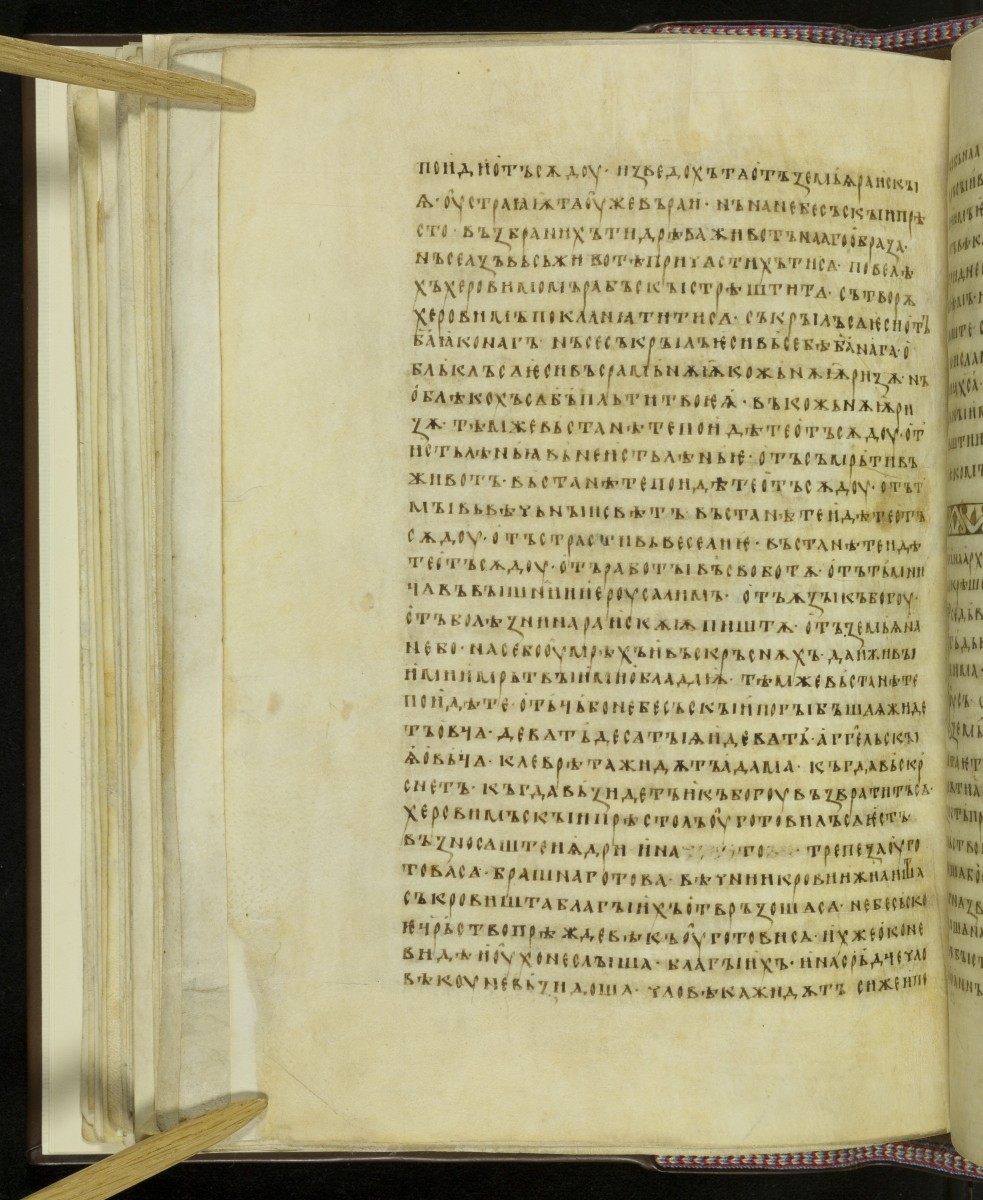 поиди отъ сѫдоу · изведохъ та отъ ꙁемьѩ раискꙑ
ѩ · оустраꙗѭ та оуже въ раи · нъ на небесъскꙑи прѣ
сто · въꙁбранихъ ти дрѣва животънааго обраꙁа ·
нъ се аꙁъ вьсь животѣ причастихъ ти са · повелѣ
хъ херовимомъ рабъскꙑ стрѣшти та · сътворѫ
херовимъ покланꙗти ти са · съкрꙑлъ са ѥси отъ
б҃а ꙗко нагъ · нъ се съкрꙑлъ ѥси вь себѣ б҃а нага · о
блькълъ са ѥси въ срамьнѫѭ кожьнѫѭ риꙁѫ · нъ
облѣкохъ са б҃ъ пльти твоѥѩ · въ кожьнѫѭ ри
ꙁѫ · тѣмже въстанѣте поидѣте отъсѫдоу · от
истьлѣньꙗ вь неистьлѣньѥ · отъ съмрьти въ
животъ · въстанѣте поидѣте отъсѫдоу · отъ т
мꙑ вь вѣчьнꙑи свѣтъ въстанѣте идѣте отъ
сѫдоу · отъ страсти вь веселиѥ · въстанѣте идѣ
те отъсѫдоу · отъ работꙑ въ свободѫ · отъ тьмни
чавъ вꙑшьнии иероусалимъ · отъ ѫꙁꙑ къ богоу ·
отъ болѣꙁни на раискѫѭ пиштѫ · отъ ꙁемьѩ на
небо · на се бо оумрѣхъ и въскръснѫхъ · да и живꙑ
ими и мрътвꙑими обладаѭ · тѣмже въстанѣте
поидѣте · отьчь бо небесъскꙑи погꙑбъшаѩ жиде
тъ овча · девать десатꙑѩ и девать · аггельскꙑ
ѩ овьча · клеврѣта жидѫтъ адама · къгда въскр
снетъ · къгда въꙁидетъ и къ богоу въꙁвратитъ са ·
херовимъскꙑи прѣстолъ оуготовилъ са ѥстъ
въꙁносаштеи ѩдри и на трепеꙁа оуго
това са · брашна готова · вѣчнии крови и жилишта
съкровишта благꙑихъ отвръꙁоша са · небесьско
ѥ ц҃рьство прѣжде вѣкъ оуготови са · ихже око не
видѣ и оухо не слꙑша · благꙑихъ · и на срьдче чло
вѣкоу не въꙁидоша · чловѣка жидѫтъ си же и по